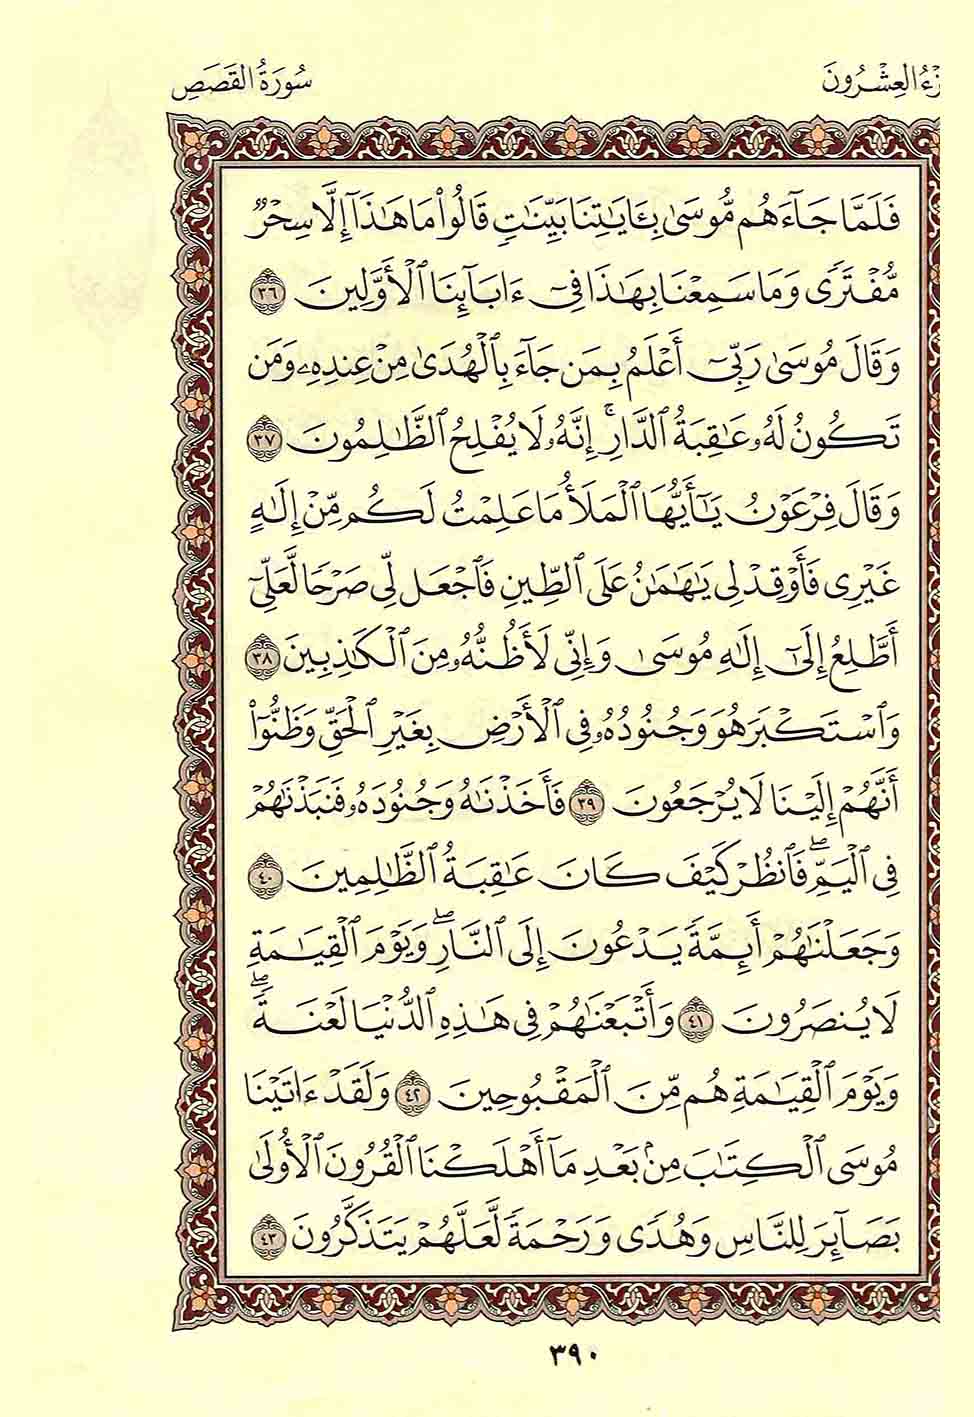 زءُ العِشْرُونَ
سُورَةُ القَصَصِ
فَلَمَّا جَآءَهُم مُّوسَىٰ بِـَٔايَٰتِنَا بَيِّنَٰتٖ قَالُواْ مَا هَٰذَآ إِلَّا سِحۡرٞ
مُّفۡتَرٗى وَمَا سَمِعۡنَا بِهَٰذَا فِيٓ ءَابَآئِنَا ٱلۡأَوَّلِينَ ٣٦
وَقَالَ مُوسَىٰ رَبِّيٓ أَعۡلَمُ بِمَن جَآءَ بِٱلۡهُدَىٰ مِنۡ عِندِهِۦ وَمَن
تَكُونُ لَهُۥ عَٰقِبَةُ ٱلدَّارِۚ إِنَّهُۥ لَا يُفۡلِحُ ٱلظَّٰلِمُونَ ٣٧
وَقَالَ فِرۡعَوۡنُ يَٰٓأَيُّهَا ٱلۡمَلَأُ مَا عَلِمۡتُ لَكُم مِّنۡ إِلَٰهٍ
غَيۡرِي فَأَوۡقِدۡ لِي يَٰهَٰمَٰنُ عَلَى ٱلطِّينِ فَٱجۡعَل لِّي صَرۡحٗا لَّعَلِّيٓ
أَطَّلِعُ إِلَىٰٓ إِلَٰهِ مُوسَىٰ وَإِنِّي لَأَظُنُّهُۥ مِنَ ٱلۡكَٰذِبِينَ ٣٨
وَٱسۡتَكۡبَرَ هُوَ وَجُنُودُهُۥ فِي ٱلۡأَرۡضِ بِغَيۡرِ ٱلۡحَقِّ وَظَنُّوٓاْ
أَنَّهُمۡ إِلَيۡنَا لَا يُرۡجَعُونَ ٣٩ فَأَخَذۡنَٰهُ وَجُنُودَهُۥ فَنَبَذۡنَٰهُمۡ
فِي ٱلۡيَمِّۖ فَٱنظُرۡ كَيۡفَ كَانَ عَٰقِبَةُ ٱلظَّٰلِمِينَ ٤٠
وَجَعَلۡنَٰهُمۡ أَئِمَّةٗ يَدۡعُونَ إِلَى ٱلنَّارِۖ وَيَوۡمَ ٱلۡقِيَٰمَةِ
لَا يُنصَرُونَ ٤١ وَأَتۡبَعۡنَٰهُمۡ فِي هَٰذِهِ ٱلدُّنۡيَا لَعۡنَةٗۖ
وَيَوۡمَ ٱلۡقِيَٰمَةِ هُم مِّنَ ٱلۡمَقۡبُوحِينَ ٤٢ وَلَقَدۡ ءَاتَيۡنَا
مُوسَى ٱلۡكِتَٰبَ مِنۢ بَعۡدِ مَآ أَهۡلَكۡنَا ٱلۡقُرُونَ ٱلۡأُولَىٰ
بَصَآئِرَ لِلنَّاسِ وَهُدٗى وَرَحۡمَةٗ لَّعَلَّهُمۡ يَتَذَكَّرُونَ ٤٣
٣٩٠